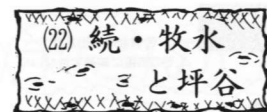 ㉒続・牧水
と坪谷